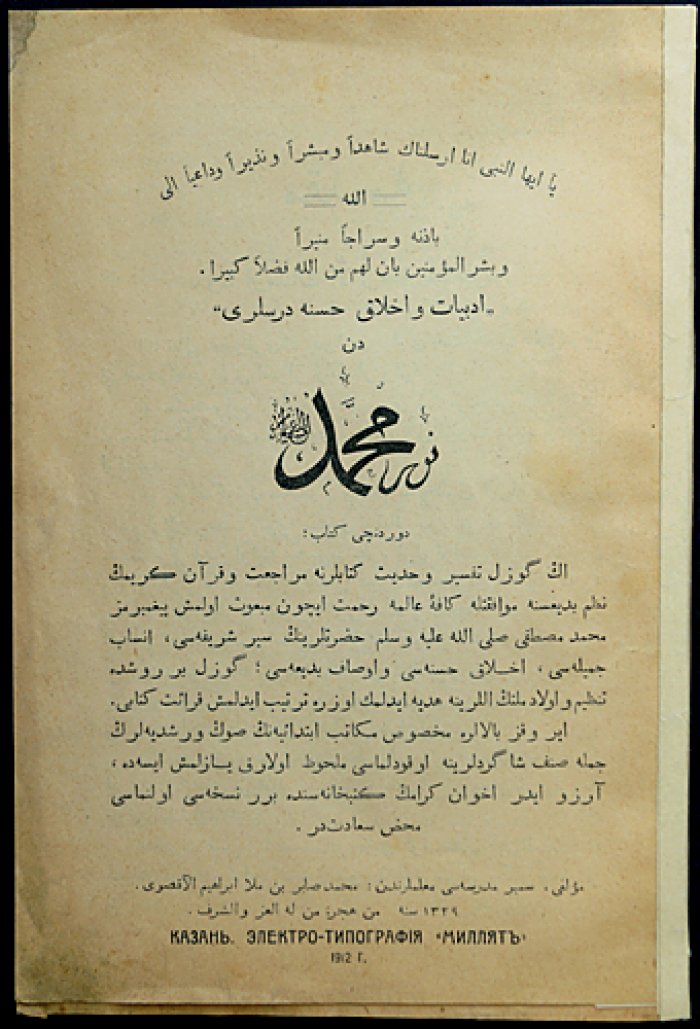 يا ايها النبى انا ارسلناك شاهداً ومبشراً ونذيراً وداعياً الى
الله
باذنه وسراجاً منيراً
وبشر المؤمنين بان لهم من الله فضلاً كبيرا .
„ادبيات و اخلاق حسنه درسلرى“
دن
نور محمد
دوردنچى كتاب :
اڭ گوزل تفسير وحديث كتابلرنه مراجعت وقرآن كريمڭ
نظم بديعسنه موافقتله كافۀ عالمه رحمت ايچون مبعوث اولمش پيغمبرمز
محمد مصطفى صلى الله عليه وسلم حضرتلرينڭ سير شريفه‌سى، انساب
جميله‌سى، اخلاق حسنه‌سى واوصاف بديعه‌سى؛ گوزل بر روشده
تنظيم واولاد ملتڭ اللرينه هديه ايدلمك اوزره ترتيب ايدلمش قرائت كتابى.
اير وقز بالالره مخصوص مكاتب ابتدائيه‌نڭ صوڭ ورشديه‌لرڭ
جمله صنف شاگردلرينه اوقودلماسى ملحوظ اولارق يازلمش ايسه‌ده،
آرزو ايدر اخوان كرامڭ كتبخانه‌سنده برر نسخه‌سى اولنماسى
محض سعادت‌در .
مؤلفى، مدرسه‌سى معلملرندين: محمد صابر بن ملا ابراهيم الآقصوى.
١٣٢٩ سنه من هجرة من له العز والشرف .
КАЗАНЬ. ЭЛЕКТРО-ТИПОГРАФІЯ «МИЛЛЯТЪ»
1912 Г.